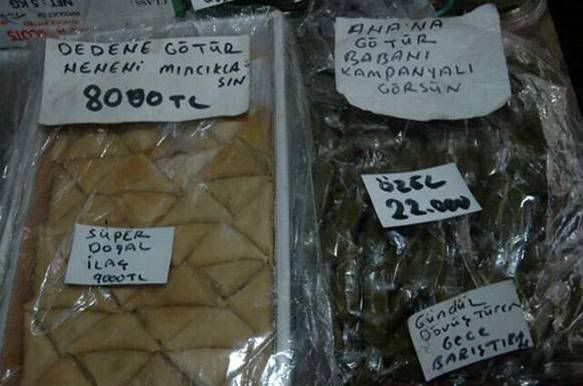 NET: 5 KG
DEDENE GÖTÜR
NENENİ MINCIKLA
SIN
8000 TL
ANA'NA
GÖTÜR
BABANI
KAMPANYALI
GÖRSÜN
ÖZEL
22.000
SÜPER
DOĞAL
İLAÇ
9000TL
GÜNDÜZ
DÖVÜŞTÜREN
GECE
BARIŞTIRAN